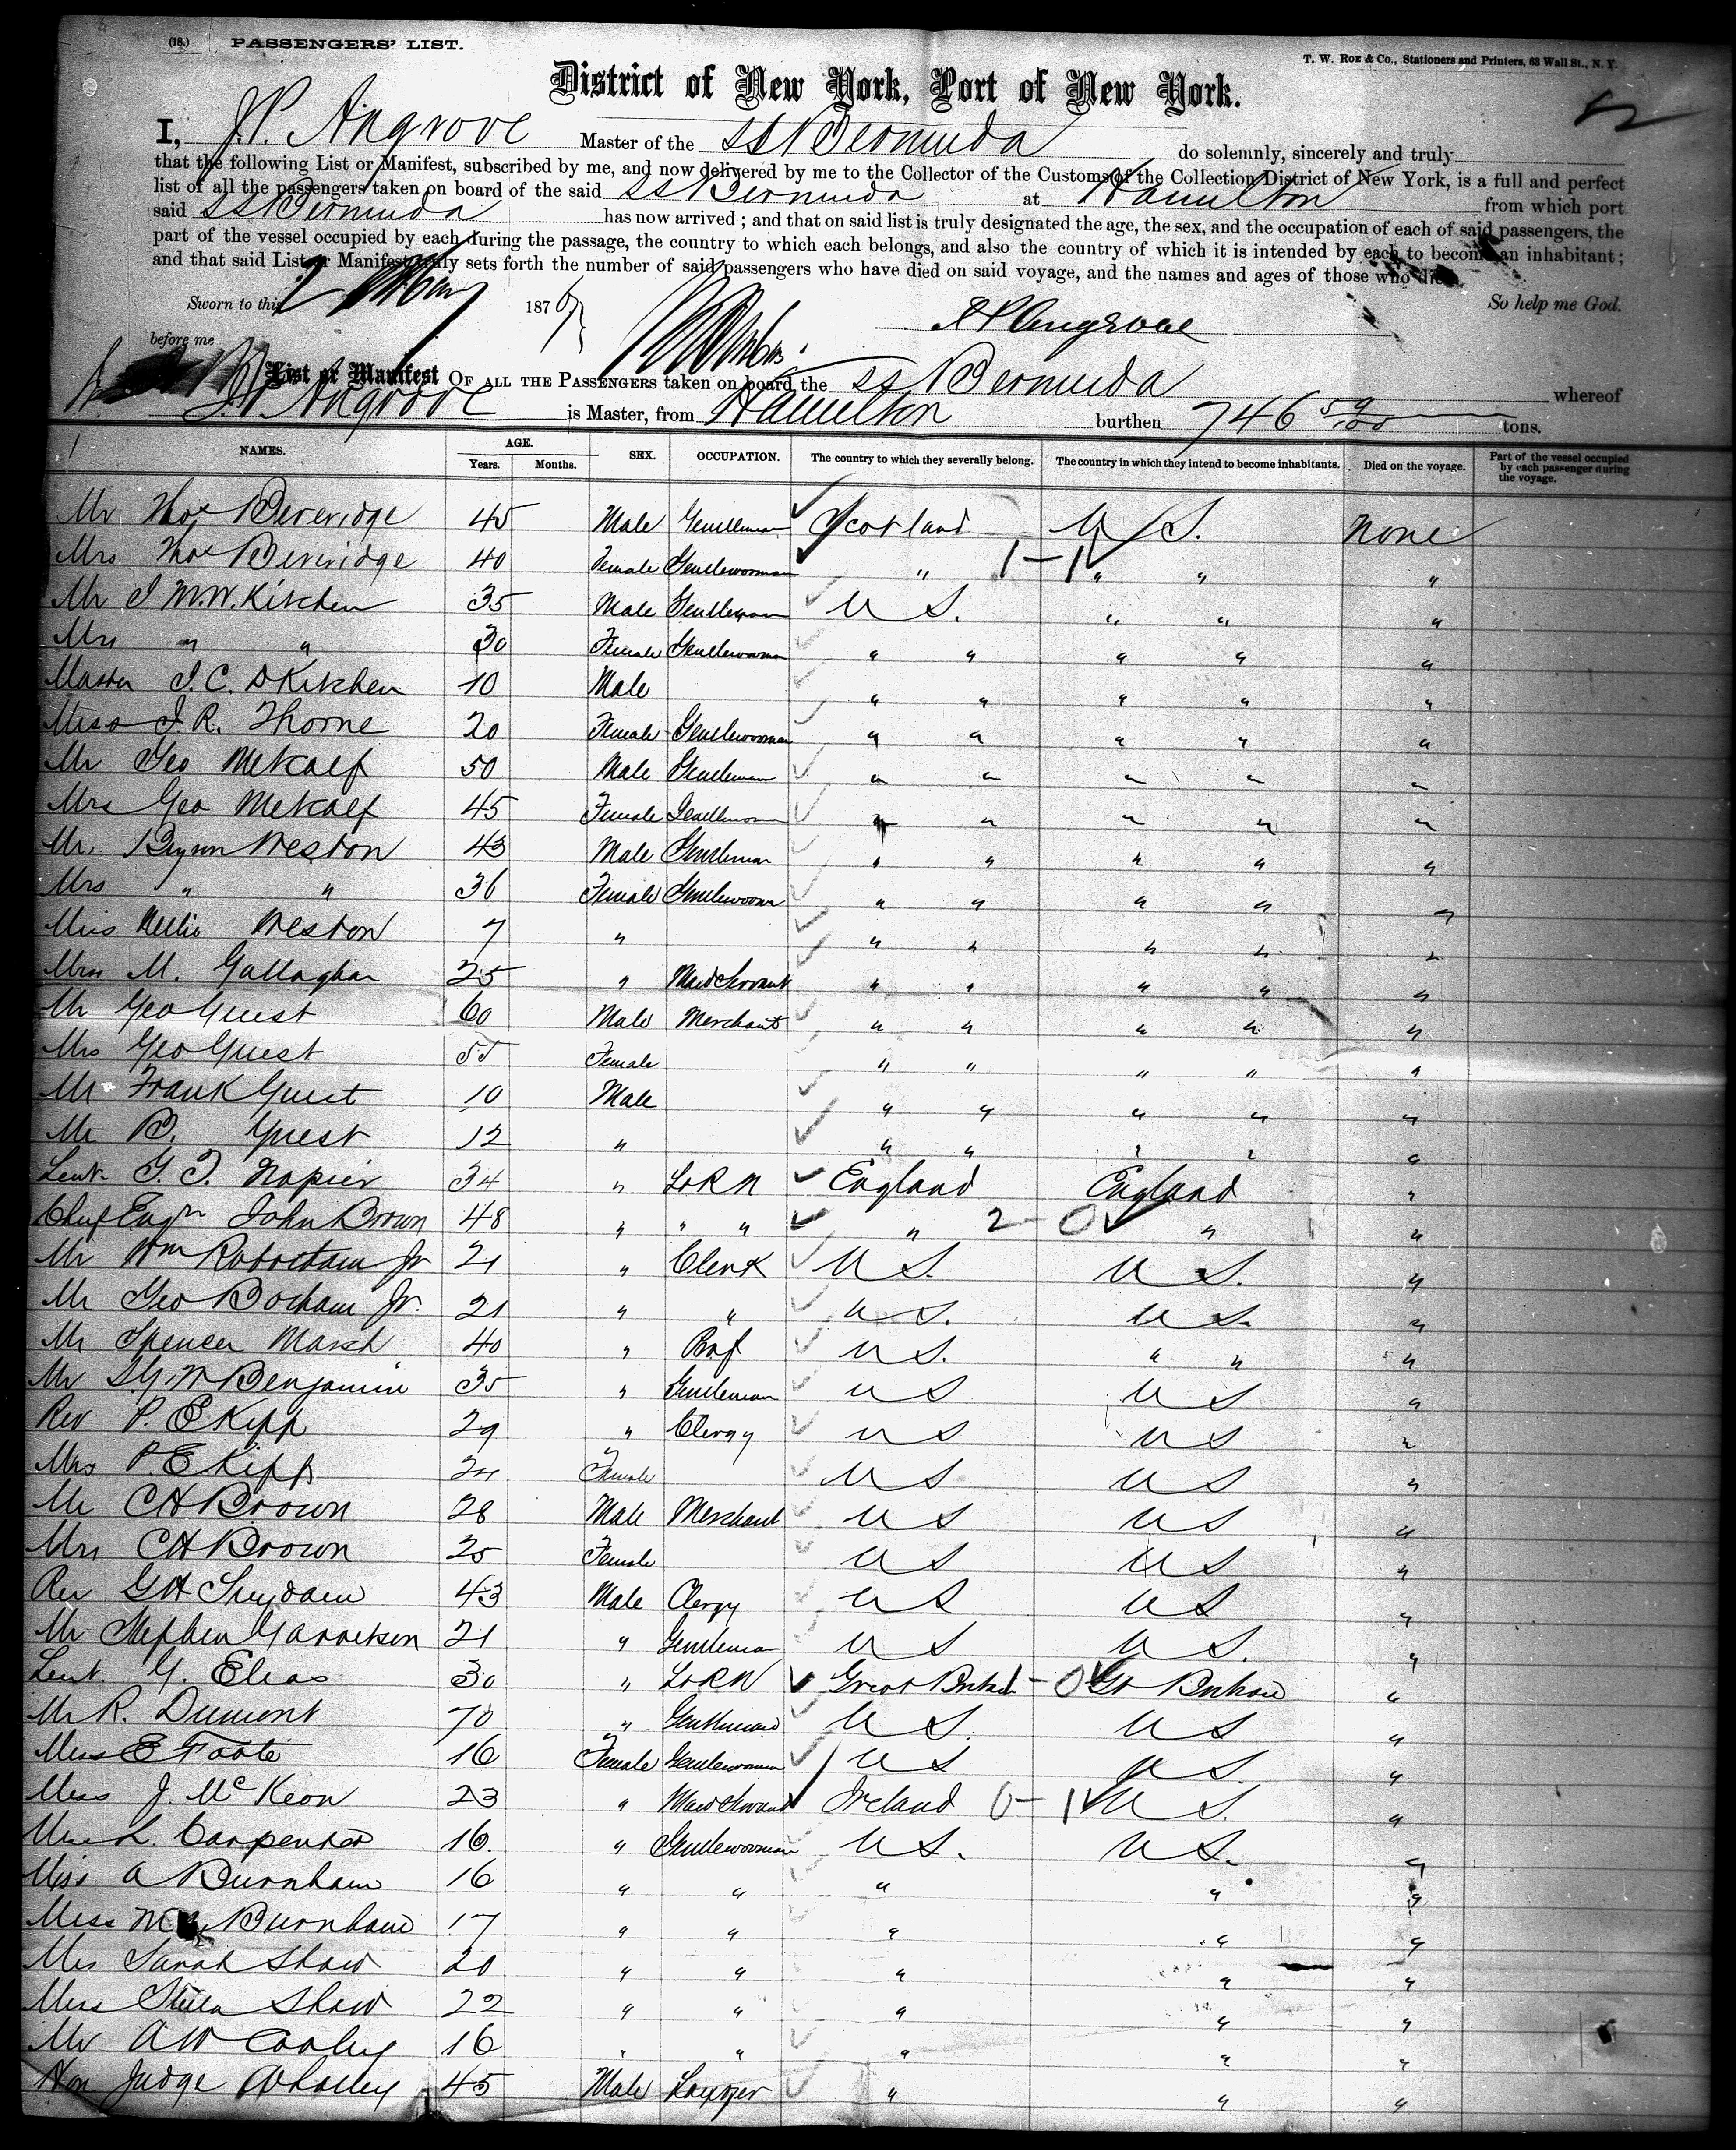 (18.) PASSENGERS' LIST.
T. W. Roe & Co., Stationers and Printers, 63 Wall St., N. Y.
District of New York, Port of New York.
I, J.P. Angrove Master of the SS Bermuda do solemnly, sincerely and truly
that the following List or Manifest, subscribed by me, and now delivered by me to the Collector of the Customs of the Collection District of New York, is a full and perfect
list of all the passengers taken on board of the said SS Bermuda at Hamilton from which port
said SS Bermuda has now arrived; and that on said list is truly designated the age, the sex, and the occupation of each of said passengers, the
part of the vessel occupied by each during the passage, the country to which each belongs, and also the country of which it is intended by each to become an inhabitant;
and that said List or Manifest truly sets forth the number of said passengers who have died on said voyage, and the names and ages of those who died.
Sworn to this 2 May 1876 So help me God.
before me J P Angrove
List or Manifest OF ALL THE PASSENGERS taken on board the SS Bermuda whereof
J P Angrove is Master, from Hamilton burthen 746 59/100 tons.
NAMES. AGE. Years. Months. SEX. OCCUPATION. The country to which they severally belong. The country in which they intend to become inhabitants. Died on the voyage. Part of the vessel occupied by each passenger during the voyage.
Mr Thos Beveridge 45 Male Gentleman Scotland U S. None
Mrs Thos Beveridge 40 Female Gentlewoman " 1 - 1 " " "
Mr J M.W. Kitchen 35 Male Gentleman U S. " " "
Mrs " " 30 Female Gentlewoman " " " " "
Master J. C. D Kitchen 10 Male " " " " "
Miss J. R. Thorne 20 Female Gentlewoman " " " " "
Mr Geo Metcalf 50 Male Gentleman " " " " "
Mrs Geo Metcalf 45 Female Gentlewoman " " " " "
Mr. Byron Weston 43 Male Gentleman " " " " "
Mrs " " 36 Female Gentlewoman " " " " "
Miss Nellie Weston 7 " " " " " "
Mrs M. Gallaghan 25 " Maid Servant " " " " "
Mr Geo Guest 60 Male Merchant " " " " "
Mrs Geo Guest 55 Female " " " " "
Mr Frank Guest 10 Male " " " " "
Mr B. Guest 12 " " " " " "
Leut. G. T. Napier 34 " Lt R N England England "
Chief Engr John Brown 48 " " " " 2 - 0 " "
Mr Wm Jr 21 " Clerk U S. U S. "
Mr Geo Jr. 21 " " U S. U S. "
Mr Spencer Marsh 40 " Prof U S. " " "
Mr S.G.W Benjamin 35 " Gentleman U S U S "
Rev P. E Kipp 29 " Clergy U S U S "
Mrs P. E Kipp 24 Female U S U S "
Mr C H Brown 28 Male Merchant U S U S "
Mrs C H Brown 25 Female U S U S "
Rev G H Suydam 43 Male Clergy U S U S "
Mr Stephen Garretson 21 " Gentleman U S U S. "
Leut. G. Elias 30 " Lt R N Great Britain - 0 Gt Britain "
Mr R. Dumont 70 " Gentleman U S. U S "
Miss E Foote 16 Female Gentlewoman U S U S. "
Miss J. McKeon 23 " Maid Servant Ireland 0 - 1 U S. "
Miss L. Carpenter 16. " Gentlewoman U S. U S. "
Miss A Burnham 16 " " " " "
Miss M Burnham 17 " " " " "
Miss Sarah Shaw 20 " " " " "
Miss Shaw 22 " " " " "
Mr A W Cooley 16 " " " " "
Hon Judge 45 Male Lawyer " " "